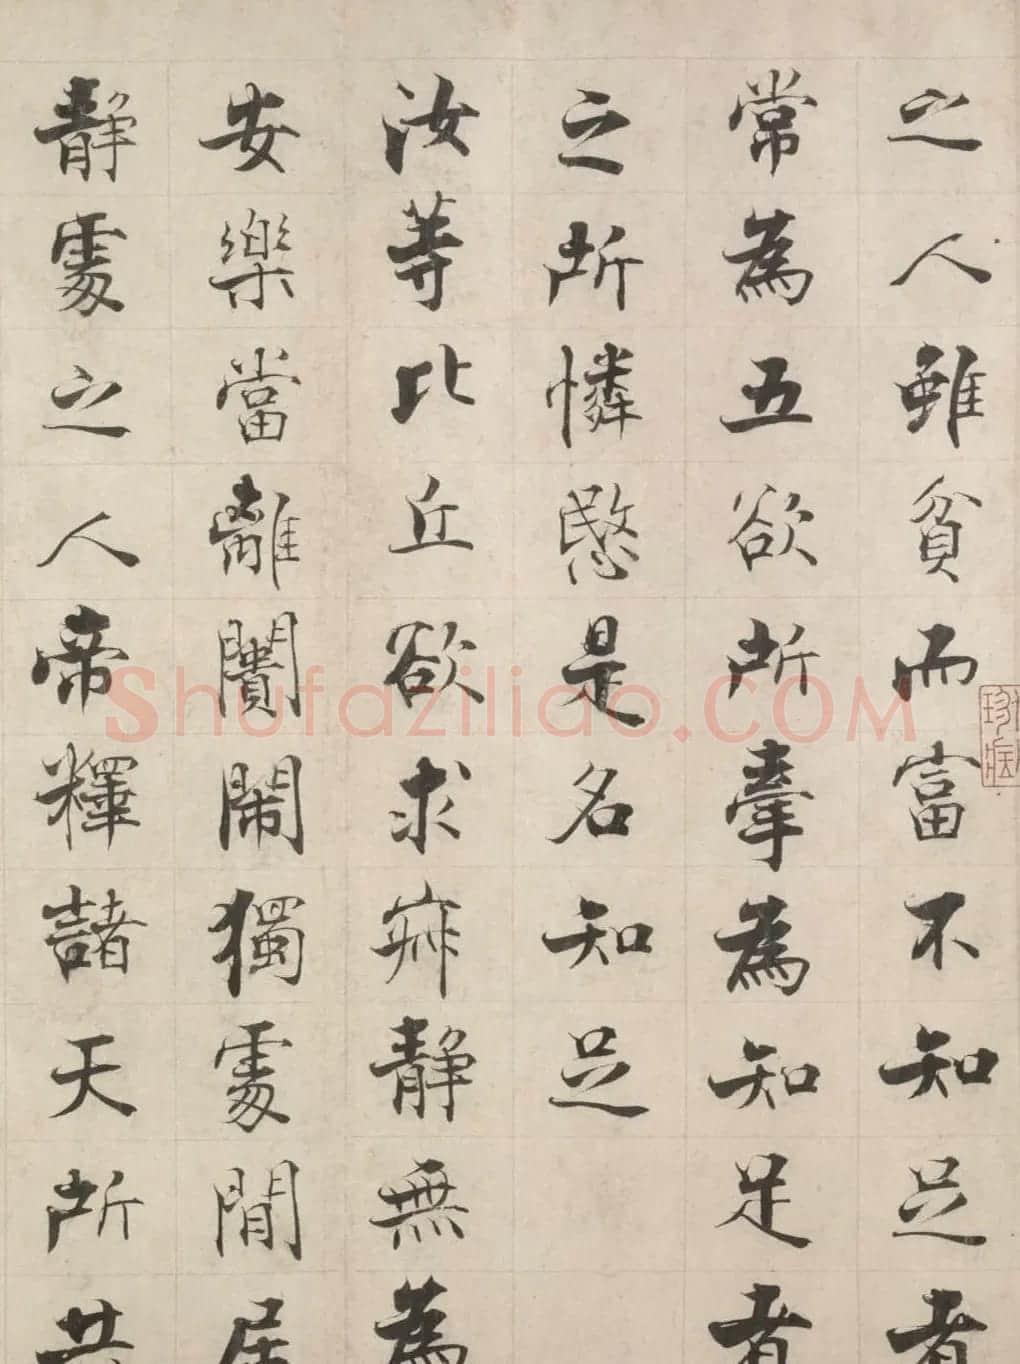 之人雖貧而富不知足者
常為五欲所牽為知足者
之所憐愍是名知足
汝等比丘欲求寂靜無為
安樂當離闠鬧獨處閒居
靜處之人帝釋諸天所共
Shufaziliao.COM